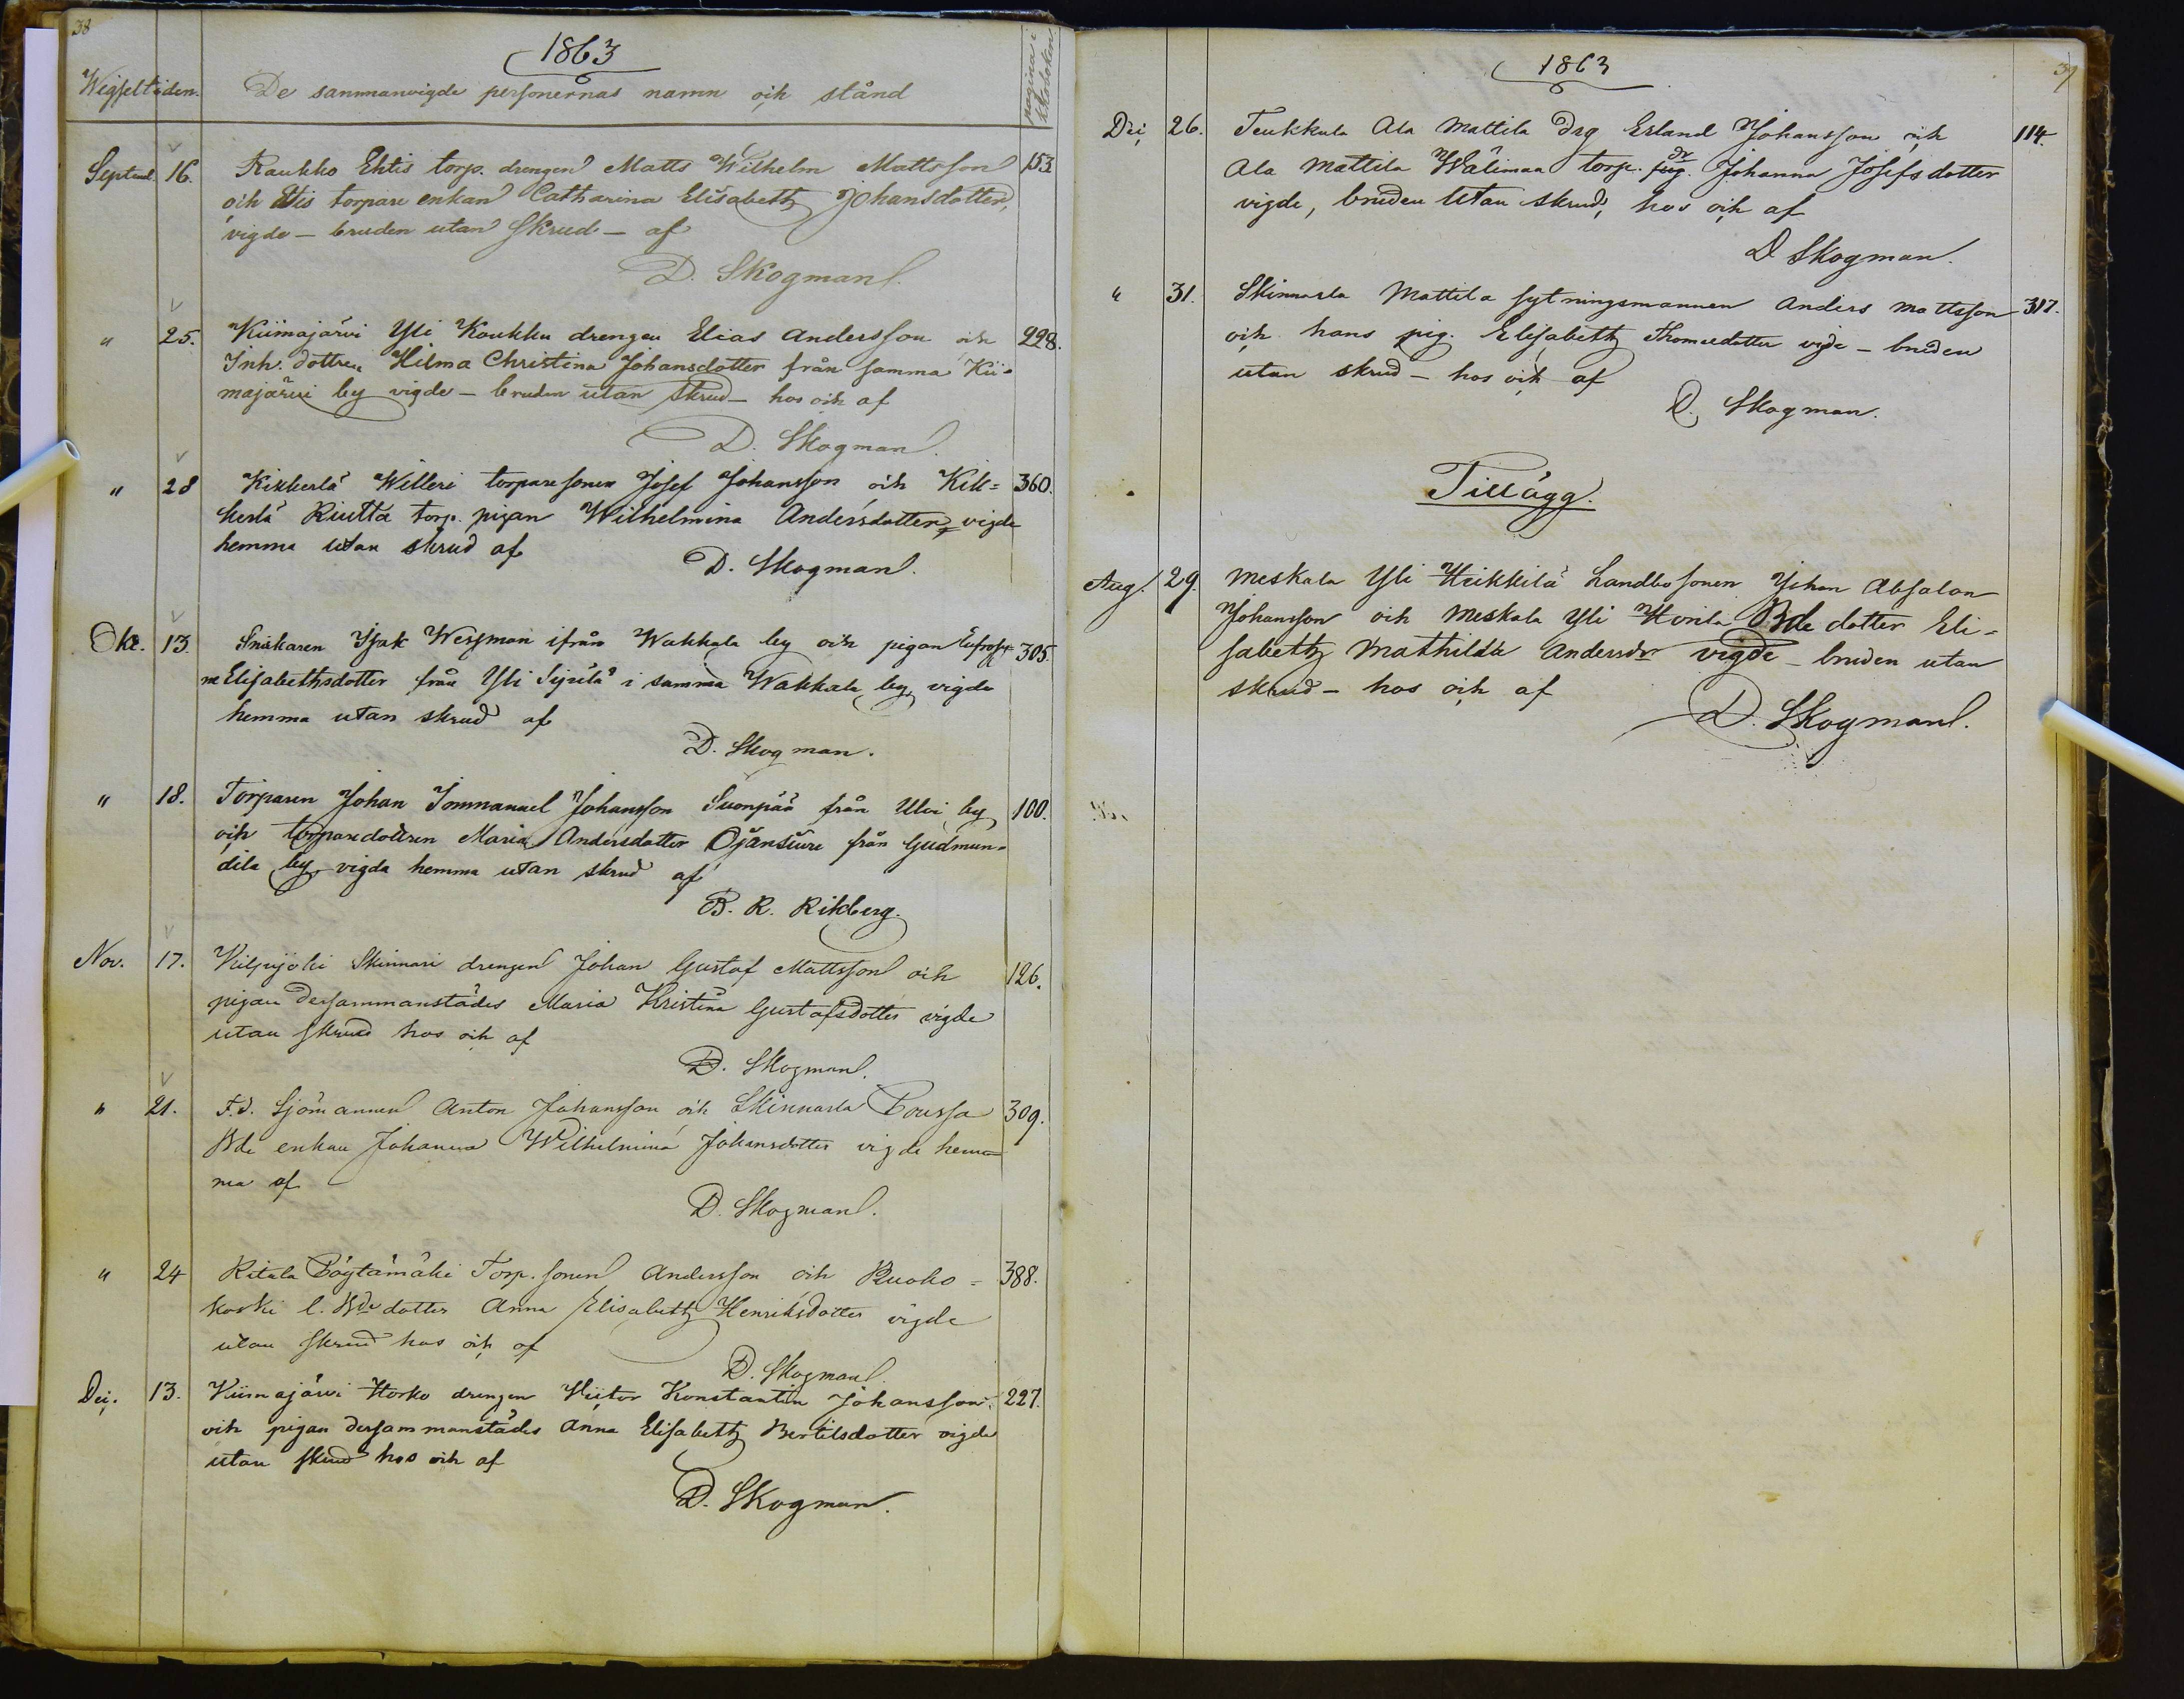 38
1863
Wigseltiden. De sammanvigde personernas namn och stånd pagina i kkoboken
Septemb. 16. Raukko Ehtis torp. drengen Matts Wilhelm Mattsson 153
och Ehtis torpare enkan Catharina Elisabeth Johansdotter,
vigde – bruden utan skrud – af
D. Skogman.
" 25. Kiimajärvi Yli Koukku drengen Elias Andersson och 228.
Inh. dottren Hilma Christina Johansdotter från samma Kii-
majärvi by vigde – bruden utan skrud – hos och af
D. Skogman.
" 28 Kikkerlä Willeri torparesonen Josef Johansson och Kik= 360.
kerlä Riutta torp. pigan Wilhelmina Andersdotter, vigde
hemma utan skrud af
D. Skogman.
Okt. 13. Snikaren Isak Wegman ifrån Wakkala by och pigan Eufrosy= 305.
ne Elisabethsdotter från Yli Sipilä i samma Wakkala by, vigde
hemma utan skrud af
D. Skogman.
" 18. Torparen Johan Immanuel Johansson Suonpää från Ulvi by, 100.
och torparedottren Maria Andersdotter Ojansuu från Gudmun-
dila by, vigda hemma utan skrud af
B. R. Rikberg.
Nov. 17. Kilpijoki Skinnari drengen Johan Gustaf Mattsson och 126.
pigan dersammanstädes Maria Kristina Gustafsdotter vigde
utan skrud hos och af
D. Skogman.
" 21. F.d. Sjömannen Anton Johansson och Skinnarla Poussa 309.
Bde enkan Johanna Wilhelmina Johansdotter vigde hem-
ma af
D. Skogman.
" 24 Ritala Pöytämäki Torp. sonen Andersson och Ruoko= 388.
koski l. Bde dotter Anna Elisabeth Henriksdotter vigde
utan skrud hos och af
D. Skogman.
Dec. 13. Kiimajärvi Horko drengen Victor Konstantin Johansson 227.
och pigan dersammanstädes Anna Elisabeth Bertilsdotter vigde
utan skrud hos och af
D. Skogman.
39
1863
Dec. 26. Teukkula Ala Mattila drg Erland Johansson och 114.
Ala Mattila Wälimaa torp. dr pig. Johanna Josefsdotter
vigde, bruden utan skrud, hos och af
D Skogman.
" 31. Skinnarla Mattila sytningsmannen Anders Mattsson 317.
och hans pig. Elisabeth Thomasdotter vigde – bruden
utan skrud – hos och af
D. Skogman.
Tillägg.
Aug. 29. Meskala Yli Heikkilä Landbosonen Johan Absalon
Johansson och Meskala Yli Bde dotter Eli-
sabeth Mathilda Andersdr vigde – bruden utan
skrud – hos och af
D. Skogman.